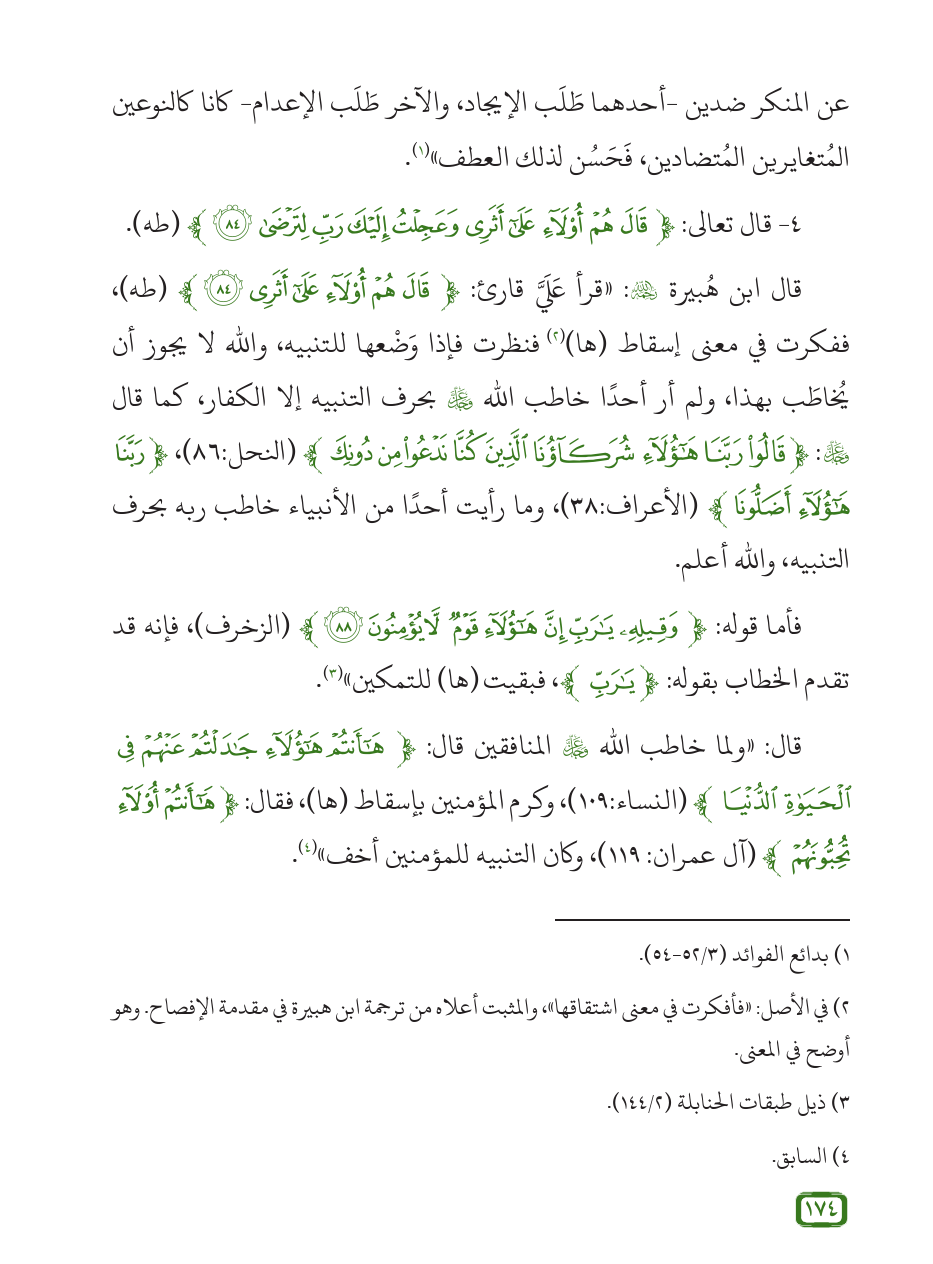 عن المنكر ضدين -أحدهما طَلَب الإيجاد، والآخر طَلَب الإعدام- كانا كالنوعين
المُتغايرين المُتضادين، فَحَسُن لذلك العطف»(١).
٤- قال تعالى: ﴿ قَالَ هُمْ أُوْلَآءِ عَلَىٰٓ أَثَرِى وَعَجِلْتُ إِلَيْكَ رَبِّ لِتَرْضَىٰ ٨٤ ﴾ (طه).
قال ابن هُبيرة ﵀: «قرأ عَلَيَّ قارئ: ﴿ قَالَ هُمْ أُوْلَآءِ عَلَىٰٓ أَثَرِى ٨٤ ﴾ (طه)،
ففكرت في معنى إسقاط (ها)(٢) فنظرت فإذا وَضْعها للتنبيه، والله لا يجوز أن
يُخاطَب بهذا، ولم أر أحدًا خاطب الله ﷿ بحرف التنبيه إلا الكفار، كما قال
﷿: ﴿ قَالُوا۟ رَبَّنَا هَٰٓؤُلَآءِ شُرَكَآؤُنَا ٱلَّذِينَ كُنَّا نَدْعُوا۟ مِن دُونِكَ ﴾ (النحل:٨٦)، ﴿ رَبَّنَا
هَٰٓؤُلَآءِ أَضَلُّونَا ﴾ (الأعراف:٣٨)، وما رأيت أحدًا من الأنبياء خاطب ربه بحرف
التنبيه، والله أعلم.
فأما قوله: ﴿ وَقِيلِهِۦ يَٰرَبِّ إِنَّ هَٰٓؤُلَآءِ قَوْمٌ لَّا يُؤْمِنُونَ ٨٨ ﴾ (الزخرف)، فإنه قد
تقدم الخطاب بقوله: ﴿ يَٰرَبِّ ﴾، فبقيت (ها) للتمكين»(٣).
قال: «ولما خاطب الله ﷿ المنافقين قال: ﴿ هَٰٓأَنتُمْ هَٰٓؤُلَآءِ جَٰدَلْتُمْ عَنْهُمْ فِى
ٱلْحَيَوٰةِ ٱلدُّنْيَا ﴾ (النساء:١٠٩)، وكرم المؤمنين بإسقاط (ها)، فقال: ﴿ هَٰٓأَنتُمْ أُوْلَآءِ
تُحِبُّونَهُمْ ﴾ (آل عمران: ١١٩)، وكان التنبيه للمؤمنين أخف»(٤).
١) بدائع الفوائد (٥٢/٣-٥٤).
٢) في الأصل: «فأفكرت في معنى اشتقاقها»، والمثبت أعلاه من ترجمة ابن هبيرة في مقدمة الإفصاح. وهو
أوضح في المعنى.
٣) ذيل طبقات الحنابلة (١٤٤/٢).
٤) السابق.
١٧٤